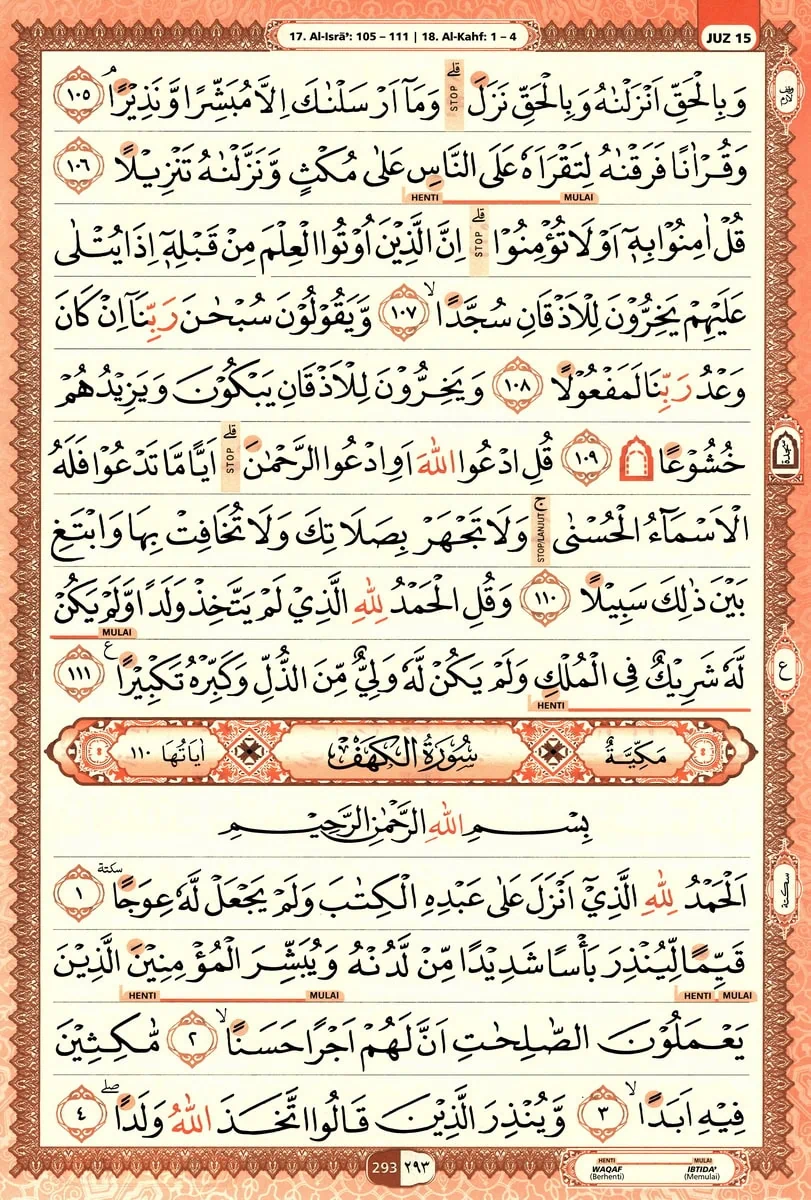 17. Al-Isrā': 105 – 111 | 18. Al-Kahf: 1 – 4
JUZ 15
وَبِالْحَقِّ اَنْزَلْنٰهُ وَبِالْحَقِّ نَزَلَۗ STOP وَمَآ اَرْسَلْنٰكَ اِلَّا مُبَشِّرًا وَّنَذِيْرًاۘ ١٠٥
وَقُرْاٰنًا فَرَقْنٰهُ لِتَقْرَاَهٗ عَلَى النَّاسِ عَلٰى مُكْثٍ وَّنَزَّلْنٰهُ تَنْزِيْلًا ١٠٦
HENTI MULAI
قُلْ اٰمِنُوْا بِهٖٓ اَوْ لَا تُؤْمِنُوْاۗ STOP اِنَّ الَّذِيْنَ اُوْتُوا الْعِلْمَ مِنْ قَبْلِهٖٓ اِذَا يُتْلٰى
عَلَيْهِمْ يَخِرُّوْنَ لِلْاَذْقَانِ سُجَّدًاۙ ١٠٧ وَّيَقُوْلُوْنَ سُبْحٰنَ رَبِّنَآ اِنْ كَانَ
وَعْدُ رَبِّنَا لَمَفْعُوْلًا ١٠٨ وَيَخِرُّوْنَ لِلْاَذْقَانِ يَبْكُوْنَ وَيَزِيْدُهُمْ
خُشُوْعًا ۩ ١٠٩ قُلِ ادْعُوا اللّٰهَ اَوِ ادْعُوا الرَّحْمٰنَۗ STOP اَيًّا مَّا تَدْعُوْا فَلَهُ
الْاَسْمَاۤءُ الْحُسْنٰىۚ STOP/LANJUT وَلَا تَجْهَرْ بِصَلَاتِكَ وَلَا تُخَافِتْ بِهَا وَابْتَغِ
بَيْنَ ذٰلِكَ سَبِيْلًا ١١٠ وَقُلِ الْحَمْدُ لِلّٰهِ الَّذِيْ لَمْ يَتَّخِذْ وَلَدًا وَّلَمْ يَكُنْ
MULAI
لَّهٗ شَرِيْكٌ فِى الْمُلْكِ وَلَمْ يَكُنْ لَّهٗ وَلِيٌّ مِّنَ الذُّلِّ وَكَبِّرْهُ تَكْبِيْرًا ࣖ ١١١
HENTI
مَكِّيَّةٌ سُوْرَةُ الْكَهْفِ اٰيَاتُهَا ١١٠
بِسْمِ اللّٰهِ الرَّحْمٰنِ الرَّحِيْمِ
اَلْحَمْدُ لِلّٰهِ الَّذِيْٓ اَنْزَلَ عَلٰى عَبْدِهِ الْكِتٰبَ وَلَمْ يَجْعَلْ لَّهٗ عِوَجًا سكتة ١
قَيِّمًا لِّيُنْذِرَ بَأْسًا شَدِيْدًا مِّنْ لَّدُنْهُ وَيُبَشِّرَ الْمُؤْمِنِيْنَ الَّذِيْنَ
HENTI MULAI HENTI MULAI
يَعْمَلُوْنَ الصّٰلِحٰتِ اَنَّ لَهُمْ اَجْرًا حَسَنًاۙ ٢ مّٰكِثِيْنَ
فِيْهِ اَبَدًاۙ ٣ وَّيُنْذِرَ الَّذِيْنَ قَالُوا اتَّخَذَ اللّٰهُ وَلَدًاۖ ٤
وقف لازم
سجدة
ع
سكتة
293 ٢٩٣
HENTI MULAI
WAQAF IBTIDA'
(Berhenti) (Memulai)